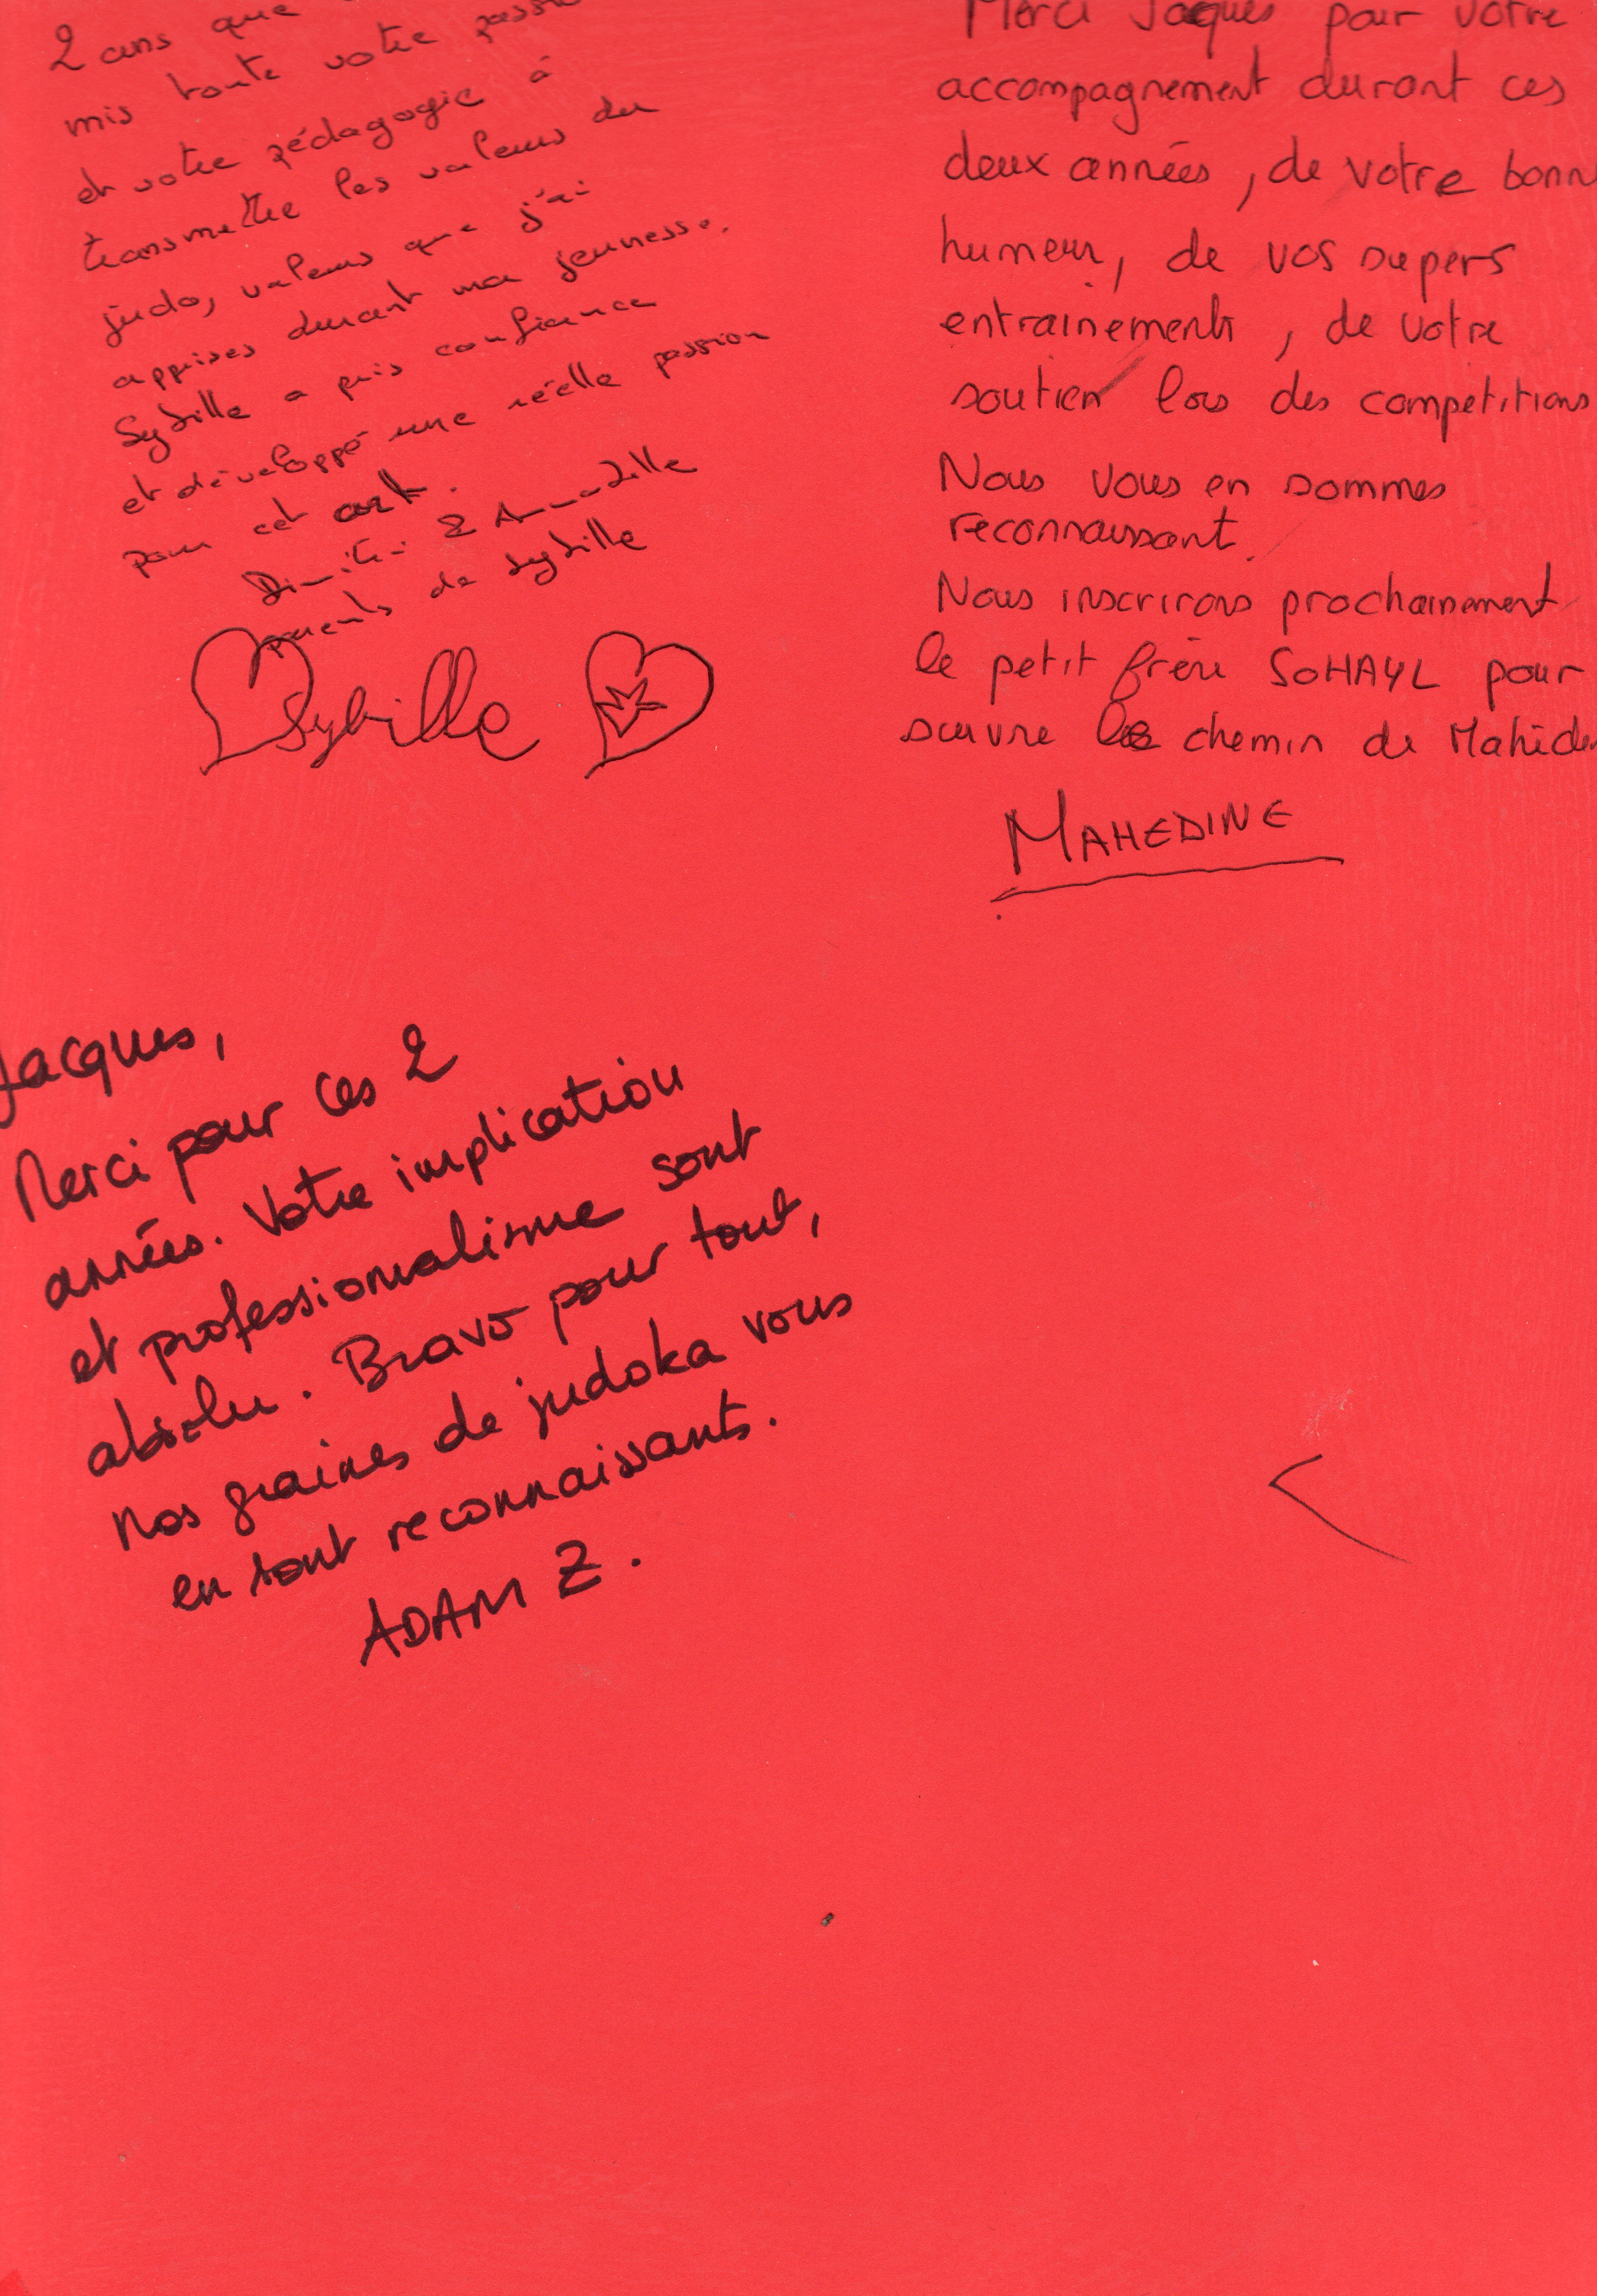 2 ans que
mis toute votre passi
et votre pédagogie à
transmettre les valeurs du
judo, valeurs que j'ai
apprises durant ma jeunesse.
Sybille a pris confiance
et développé une réelle passion
pour cet art.
Dimitri & Armadelle
parents de Sybille
Sybille
Merci Jacques pour votre
accompagnement durant ces
deux années, de votre bonn
humeur, de vos supers
entrainements, de votre
soutien lors des competitions
Nous vous en sommes
reconnaissant.
Nous inscrirons prochainement
le petit frère SOHAYL pour
suivre le chemin de Mahedin
MAHEDINE
Jacques,
Merci pour ces 2
années. Votre implication
et professionnalisme sont
absolu. Bravo pour tout,
Nos graines de judoka vous
en sont reconnaissants.
ADAM Z.